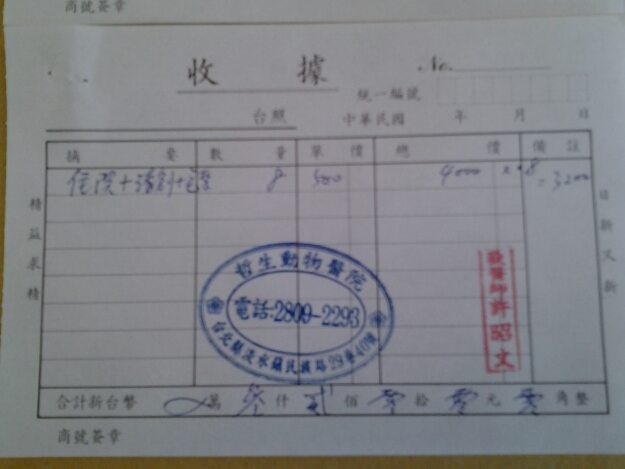 商號簽章
收據
No.
統一編號
台照 中華民國 年 月 日
摘要 數量 單價 總價 備註
住院+清創+ 8 500 4000 x 0.8
=3200
精益求精
日新又新
哲生動物醫院
電話:2809-2293
台北縣淡水鎮民族路29巷40號
獸醫師許昭文
合計新台幣 萬 參仟 貳佰 零拾 零元 零角整
商號簽章